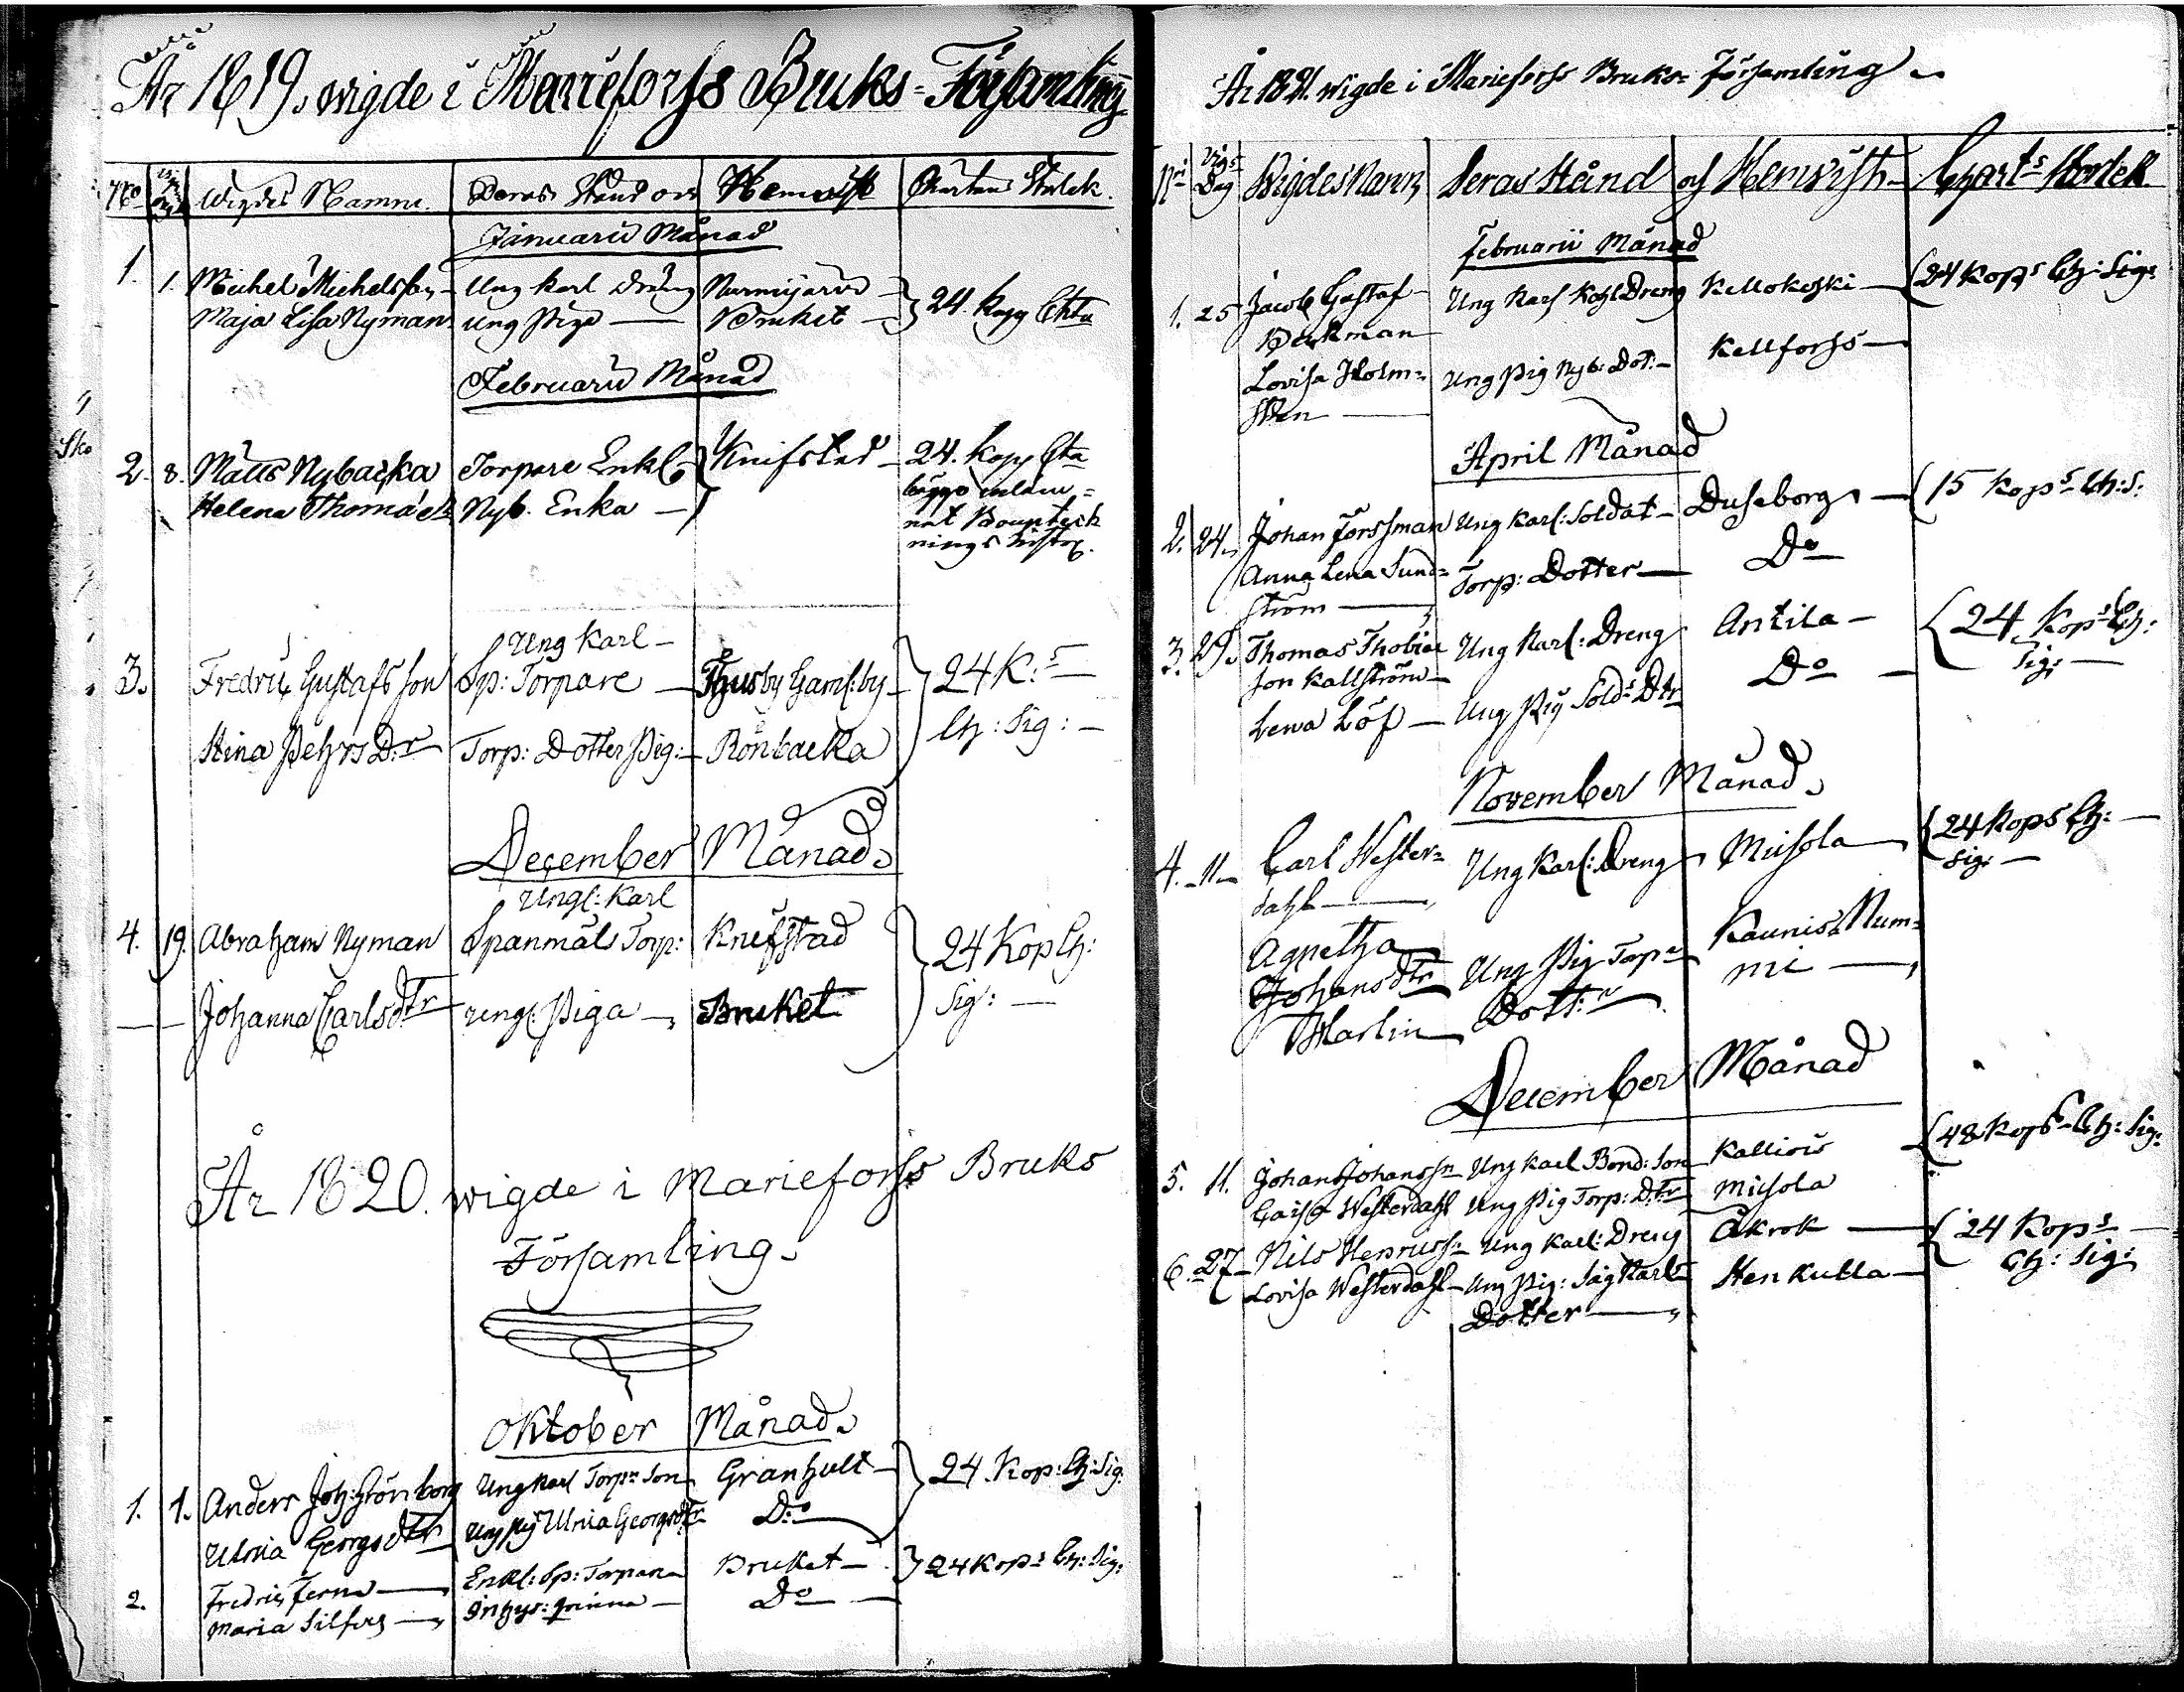 År 1819. wigde i Marieforss Bruks-Församling
No Wigdes Namn. Deras Stånd och Hemvist Chartæ Storlek.
Januarii Månad
1. 1. Michel Michelsson Ung Karl Dräng Nurmijärvi 24. Kopp Chta
Maja Lisa Nyman Ung Piga Bruket
Februarii Månad
2. 8. Matts Nybacka Torpare Enkl. Knifstad 24. Kopp Cta
Helena Thomæ Nyb. Enka
3. Ung Karl
Fredric Gustafsson Sp: Torpare Thusby Gaml: by 24 K:s
Stina Pehrs D:r Torp: Dotter Pig: Rönbacka Ch: Sig:
December Månad.
Ungl: Karl
4. 19. Abraham Nyman Spanmåls Torp: Knifstad 24 Kop Ch:
Johanna Carlsdtr ung: Piga Bruket Sig:
År 1820. wigde i Marieforss Bruks
Församling.
Oktober Månad.
1. 1. Anders Joh: Grönborg Ung Karl Torp:s Son Granhult 24 Kop: Ch: Sig:
Ulrica Georgsdtr Ung Pig Ulrica Georgsdtr D:o
2. Fredric Ferne Enkl: Sp: Torpare Bruket 24 Kop:s Ch: Sig:
Maria Silfver Inhys: Qvinna D:o
År 1821. wigde i Marieforss Bruks-Församling
N:r Vigs Dag Wigdes Namn Deras Stånd och Hemvist Chart:s Storlek
Februarii Månad
1. 25 Jacob Gustaf Ung Karl Kohl Dreng Kellokoski 24 Kop:s Ch: Sig:
Berkman
Lovisa Holm= Ung Pig Nyb: Dot: Kellforss
sten
April Månad
2. 24. Johan Forssman Ung Karl: Soldat Duseborg 15 Kop:s Ch: S:
Anna Lena Sund= Torp: Dotter D:o
ström
3. 29. Thomas Thobiæ Ung Karl: Dreng Antila 24 Kop:s Ch:
son Kallström Sig:
Lena Löf Ung Pig Sold:s Dtr D:o
November Månad.
4. 11. Carl Wester= Ung Karl: Dreng Misola 24 Kop:s Ch:
dahl Sig:
Agnetha Ung Pig Torp:s Kaunis Num=
Johansdtr Dott:r mi
Harlin
December Månad
5. 11. Johan Johanss:n Ung Karl Bond: Son Kalliois 48 Kop:s Ch: Sig:
Caisa Westerdahl Ung Pig Torp: Dtr Misola
6. 27 Nils Henricss:n Ung Karl: Dreng Åkrok 24 Kop:s
Lovisa Westerdahl Ung Pig: Såg Karls Stenkulla Ch: Sig:
Dotter